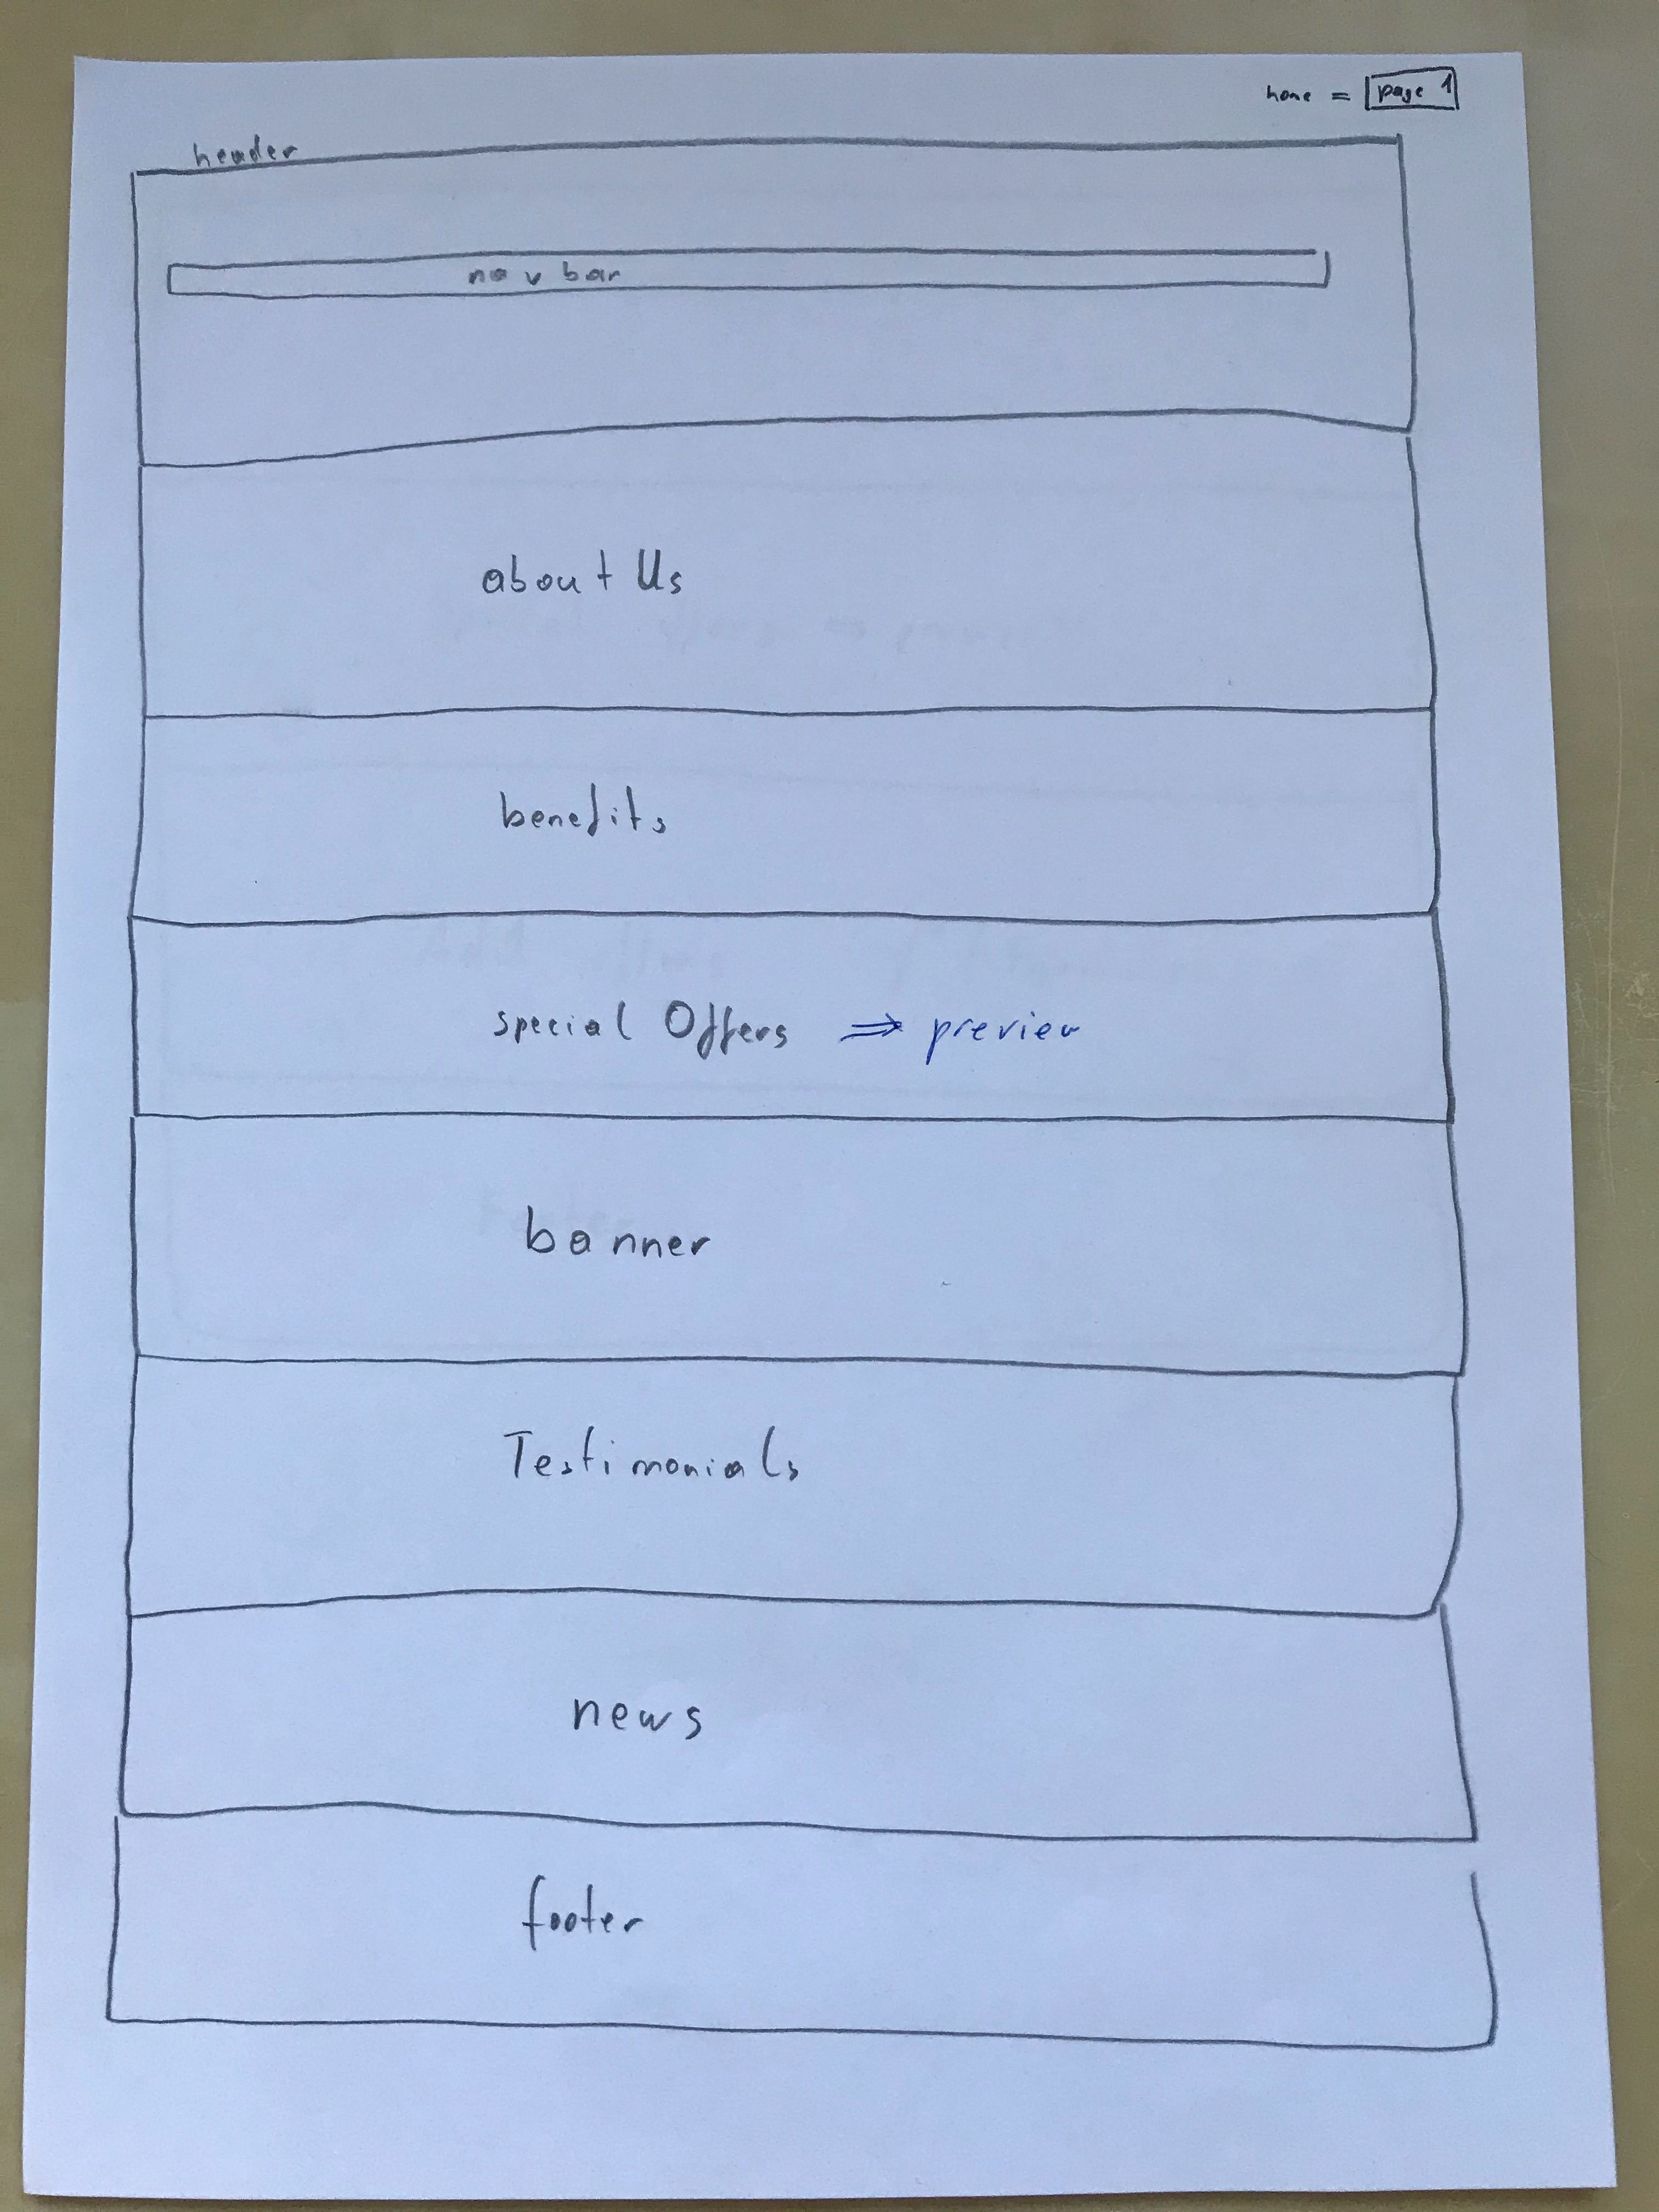 home = page 1
header
nav bar
about Us
benefits
special Offers ⇒ preview
banner
Testimonials
news
footer